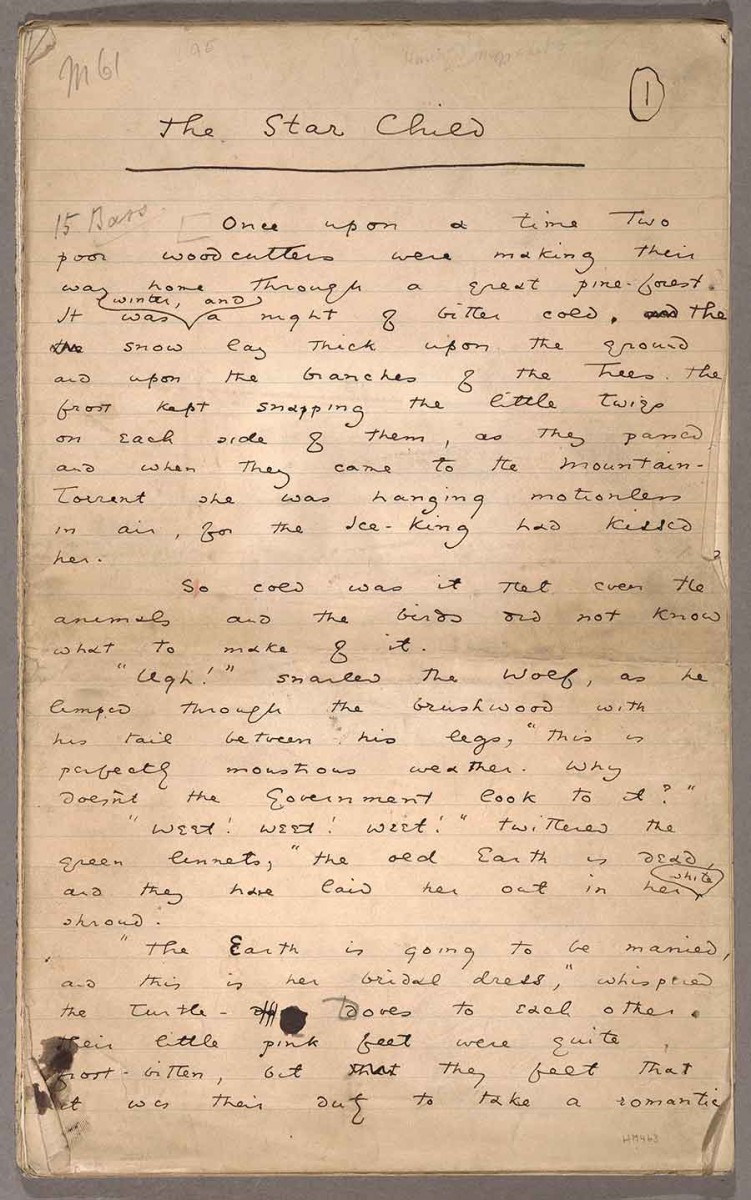 M 61
1
The Star Child
15 Bars
Once upon a time Two
poor woodcutters were making their
way home through a great pine-forest.
winter, and
It was a night of bitter cold. and The
the snow lay thick upon the ground
and upon the branches of the Trees. The
frost kept snapping the little twigs
on each side of them, as they passed
and when they came to the Mountain-
Torrent she was hanging motionless
in air, for the Ice-King had kissed
her.
So cold was it that even the
animals and the birds did not know
what to make of it.
"Ugh!" snarled the Wolf, as he
limped through the brushwood with
his tail between his legs, "this is
perfectly monstrous weather. Why
doesn't the Government look to it?"
"Weet! weet! weet!" twittered the
green linnets, "the old Earth is dead,
white
and they have laid her out in her
shroud.
"The Earth is going to be married,
and this is her bridal dress," whispered
the Turtle- Doves to each other.
Their little pink feet were quite
frost-bitten, but that they felt that
it was their duty to take a romantic
HM463